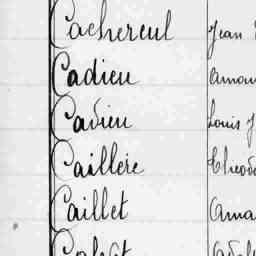 Cachereul Jean
Cadieu Amou
Cadieu Louis J
Caillère Théod
Caillet Ama